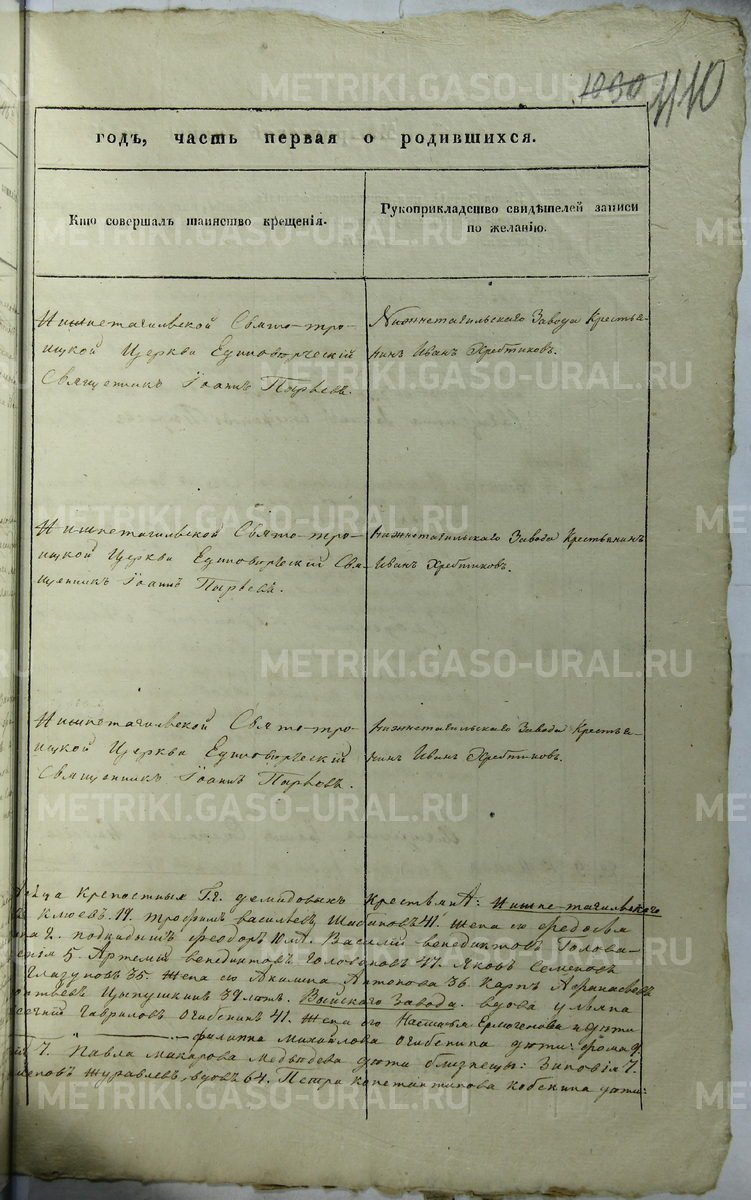 1090 1110
годъ, часть первая о родившихся.
Кто совершалъ таинство крещенія.
Рукоприкладство свидѣтелей записи
по желанію.
Нижнетагилской Свято-тро-
ицкой Церкви Единовѣрческій
Священникъ Іоаннъ Пырьевъ.
Нижнетагильскаго Завода Крестья-
нинъ Иванъ Хребтиковъ.
Нижнетагилской Свято-тро-
ицкой Церкви Единовѣрческій Свя-
щенникъ Іоаннъ Пырьевъ.
Нижнетагильскаго Завода Крестьянинъ
Иванъ Хребтиковъ.
Нижнетагилской Свято-тро-
ицкой Церкви Единовѣрческій
Священникъ Іоаннъ Пырьевъ.
Нижнетагильскаго Завода Крестья-
нинъ Иванъ Хребтиковъ.
крепостныхъ Г.г. демидовыхъ Крестьянъ: Нижне-тагильского
Клюевъ. 19. трофимъ васильевъ Шибановъ 41. жена ево федосья
2. подкидышъ феодоръ 10. Василій венедиктовъ Голова-
5. Артемій венедиктовъ Головановъ 47. Яковъ Семеновъ
Глазуновъ 35. жена ево Акилина Антонова 36. Карпъ Афанасьевъ
Цыпушкинъ 37 лѣтъ. Выйскаго Завода. вдова ульяна
Гавриловъ Огибенинъ 41. Жена его Настасья Ермогенова и дѣти
филиппа Михайлова Огибенина дѣти: фома 9.
7. Павла Макарова Медвѣдева дѣти близнецы: Зиновія 7.
Журавлевъ, вдовъ 64. Петра константинова кобенина дѣти:
METRIKI.GASO-URAL.RU